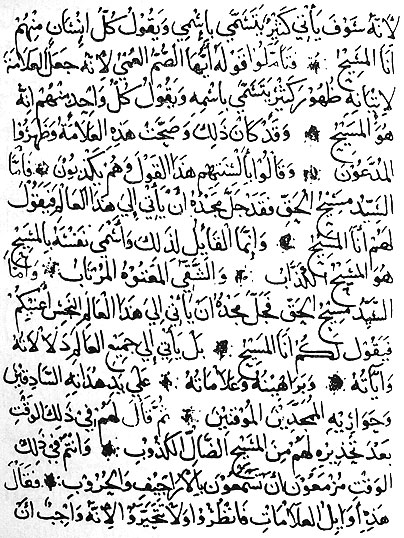 لانه سوف يأتي كثير يتسمى بإسمي ويقول كل انسان منهم
انا المسيح ۞ فتاملوا قوله أيها الصم العمي لانه جعل العلامة
لاتيانه ظهور كثير يتسمى باسمه ويقول كل واحد منهم انه
هو المسيح ۞ وقد كان ذلك وصحت هذه العلامة وظهروا
المدعون ۞ وقالوا بألسنتهم هذا القول وهم يكذبون ۞ فأما
السيد مسيح الحق فقد جل مجده أن يأتي إلى هذا العالم فيقول
لهم أنا المسيح ۞ وإنما القايل لذلك وأسمي نفسه بالمسيح
هو المسيح الكذاب ۞ والشقي المعتوه المرتاب ۞ وأما
السيد مسيح الحق فجل مجده ان يأتي إلى هذا العالم النجس
فيقول لكم أنا المسيح ۞ بل يأتي إلى جميع العالم دلالاته
وآياته ۞ وبراهينه وعلاماته ۞ على يد هداته الصادقين
وحواريه الممجدين الموقنين ۞ ثم قال لهم في ذلك الوقت
بعد تحذيره لهم من المسيح الضال الكذوب ۞ وانتم في ذلك
الوقت مزمعون أن تسمعون بالأراجيف والحروب ۞ فقال
هذه أوايل العلامات فانظروا ولا تحيروا لأنه واجب ان